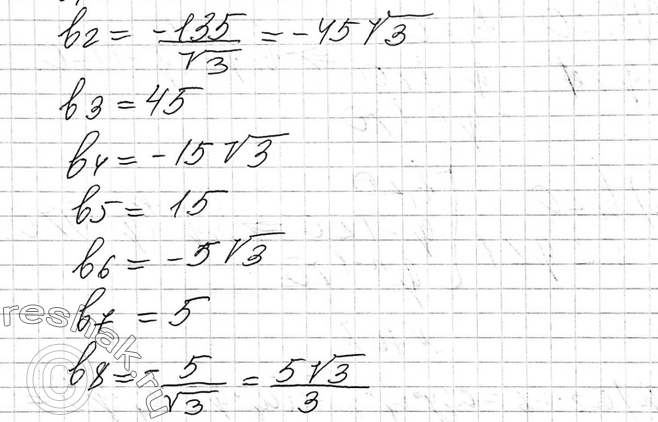 b2 = -135/√3 = -45√3
b3 = 45
b4 = -15√3
b5 = 15
b6 = -5√3
b7 = 5
b8 = -5/√3 = 5√3/3
reshak.ru